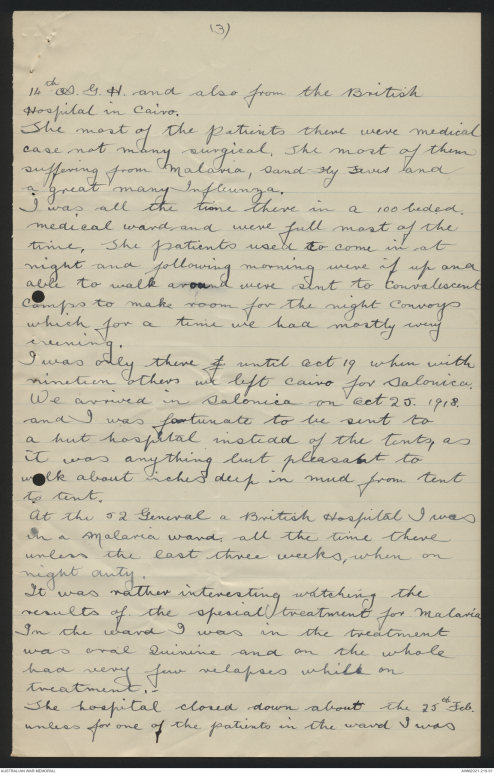 (3)
14th A.G.H. and also from the British
Hospital in Cairo.
The most of the patients there were medical
case not many surgical. The most of them
suffering from Malaria, Sand Fly Fever and
a great many Infleunza.
I was all the time there in a 100 beded.
medical ward and were full most of the
time. The patients used to come in at
night and following morning were if up and
able to walk around were sent to Convalescent
Camps to make room for the night Convoys
which for a time we had mostly every
evening.
I was only there until Oct 19 when with
nineteen others we left Cairo for Salonica.
We arrived in Salonica on Oct 25. 1918.
and I was fortunate to be sent to
a hut hospital instead of the tents, as
it was anything but pleasant to
walk about inches deep in mud from tent
to tent.
At the 52 General a British Hospital I was
in a Malaria ward, all the time there
unless the last three weeks, when on
night duty.
It was rather interesting watching the
results of the special treatment for Malaria
In the ward I was in the treatment
was oral Quinine and on the whole
had very few relapses while on
treatment.-
The hospital closed down about the 25th Feb.
unless for one of the patients in the ward I was
AUSTRALIAN WAR MEMORIAL